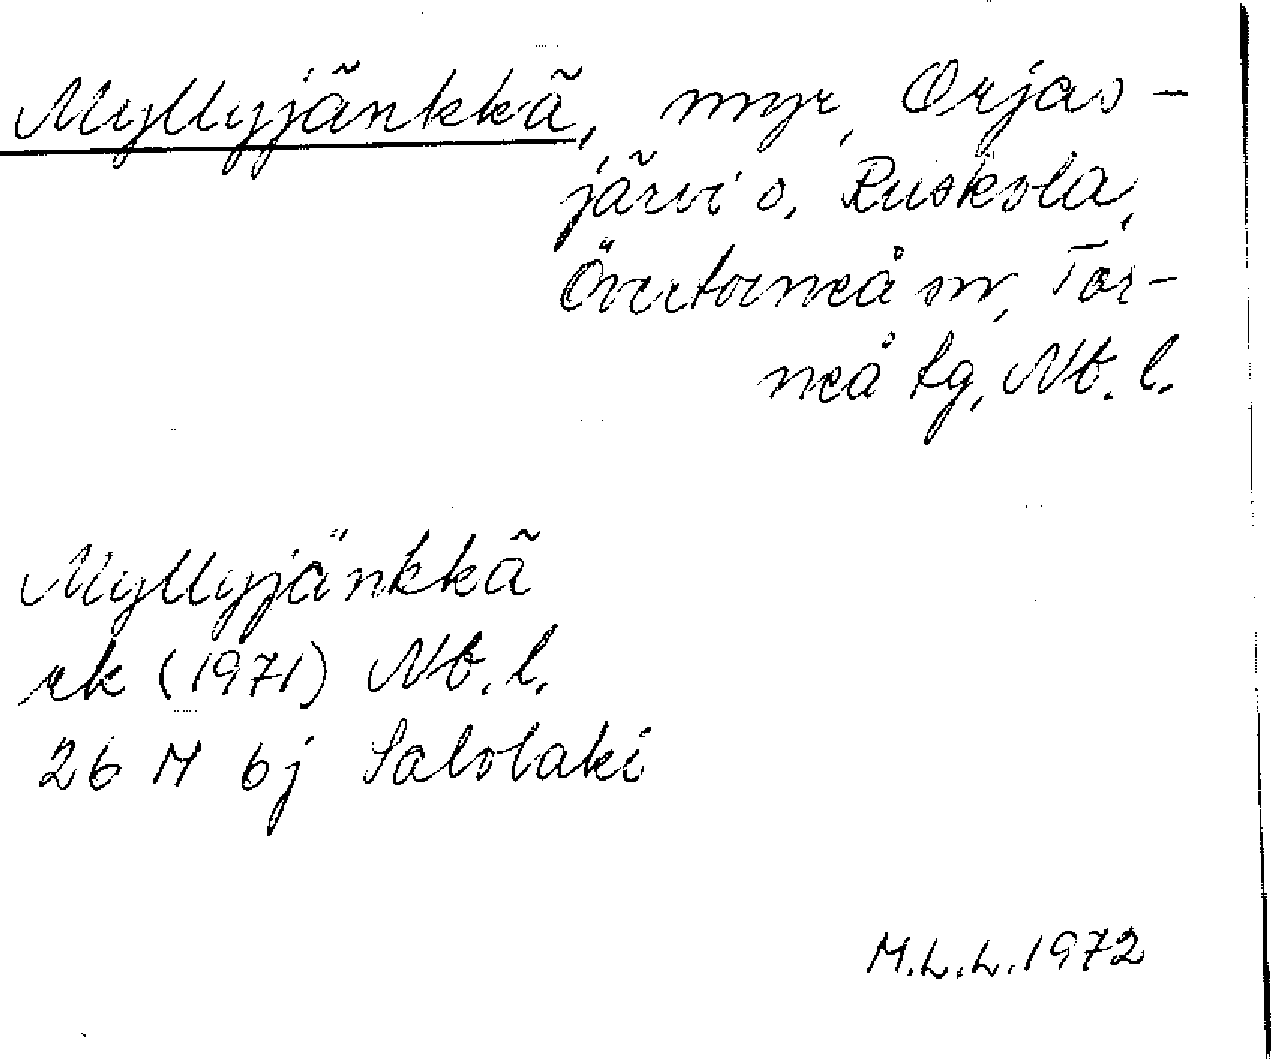 Myllyjänkkä, myr, Orjas-
järvi o, Ruskola,
Övertorneå sn, Tor-
neå tg, Nb. l.
Myllyjänkkä
ek (1971) Nb. l.
26 M 6j Salolaki
M.L.L. 1972